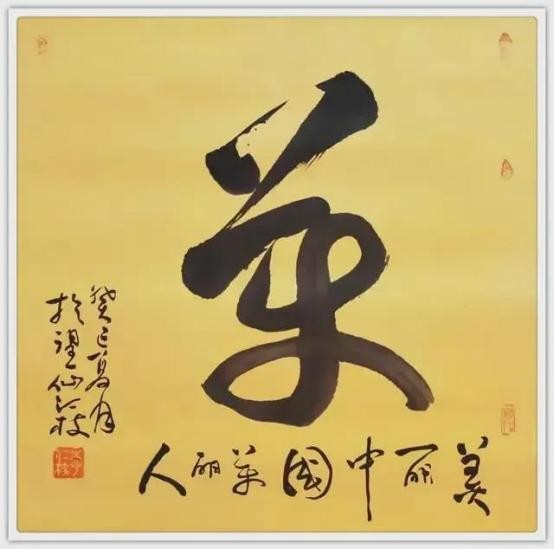 美
美丽中国美丽人
癸巳夏月
於